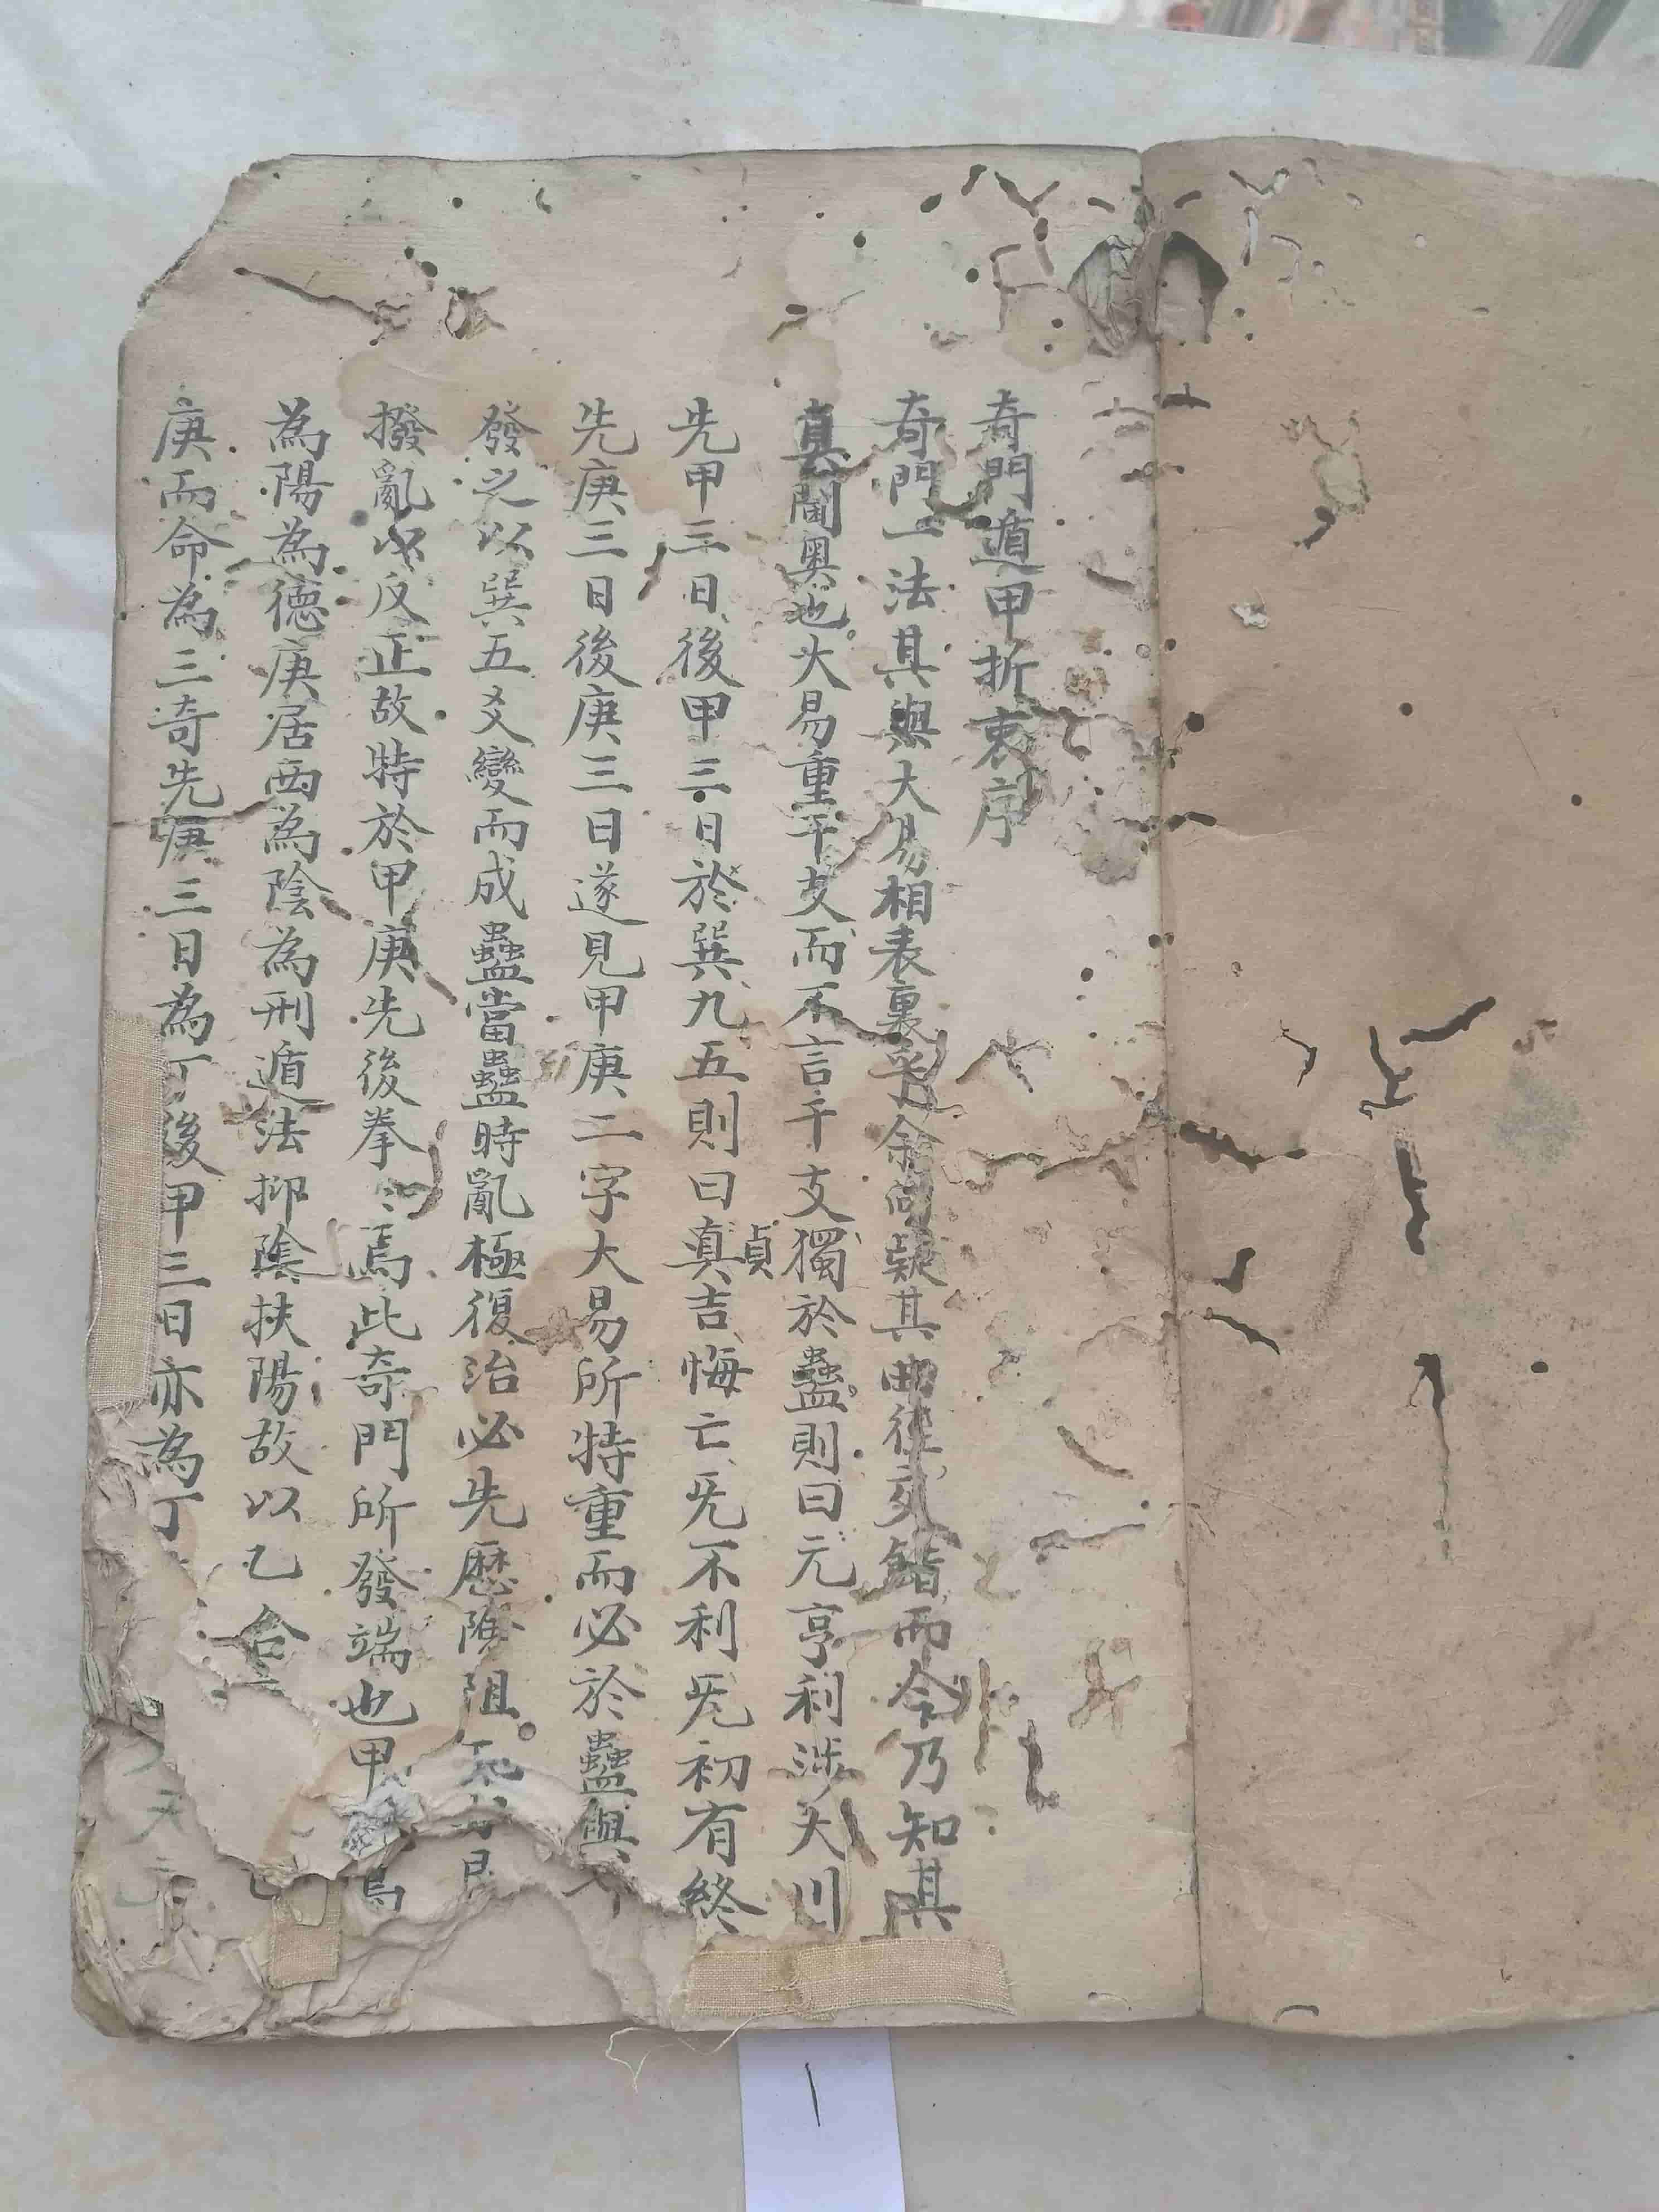 奇門遁甲折衷序
奇門一法其與大易相表裏乎余向疑其曲徑交錯而今乃知其
真閫奧也大易重干支而不言干支獨於蠱則曰元亨利涉大川
先甲三日後甲三日於巽九五則曰真吉悔亡旡不利旡初有終
貞
先庚三日後庚三日遂見甲庚二字大易所特重而必於蠱與
發之以巽五爻變而成蠱當蠱時亂極復治必先歷險阻
撥亂以反正故特於甲庚先後拳〻焉此奇門所發端也甲
為陽為德庚居西為陰為刑遁法抑陰扶陽故以乙合
庚而命為三奇先庚三日為丁後甲三日亦為丁